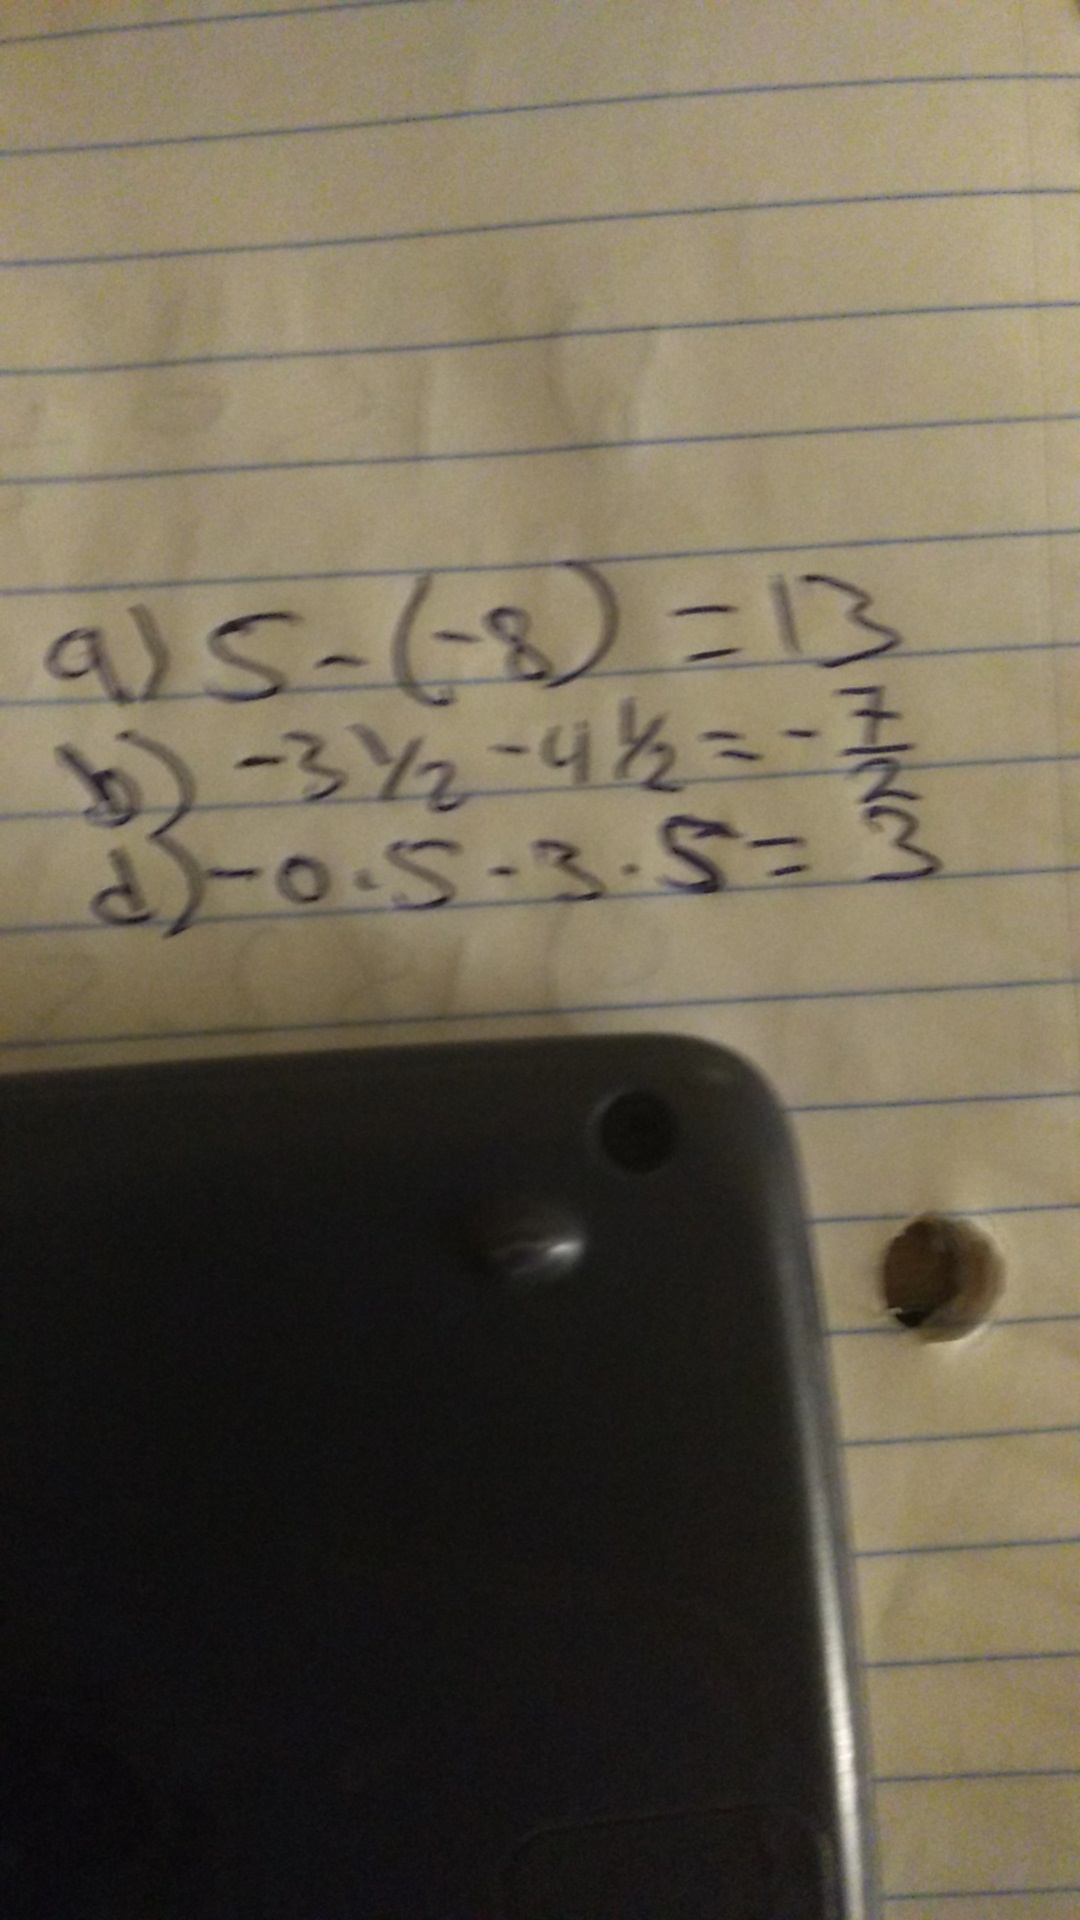 a) 5 - (-8) = 13
b) -3 1/2 - 4 1/2 = - 7/2
d) -0.5 - 3.5 = 3